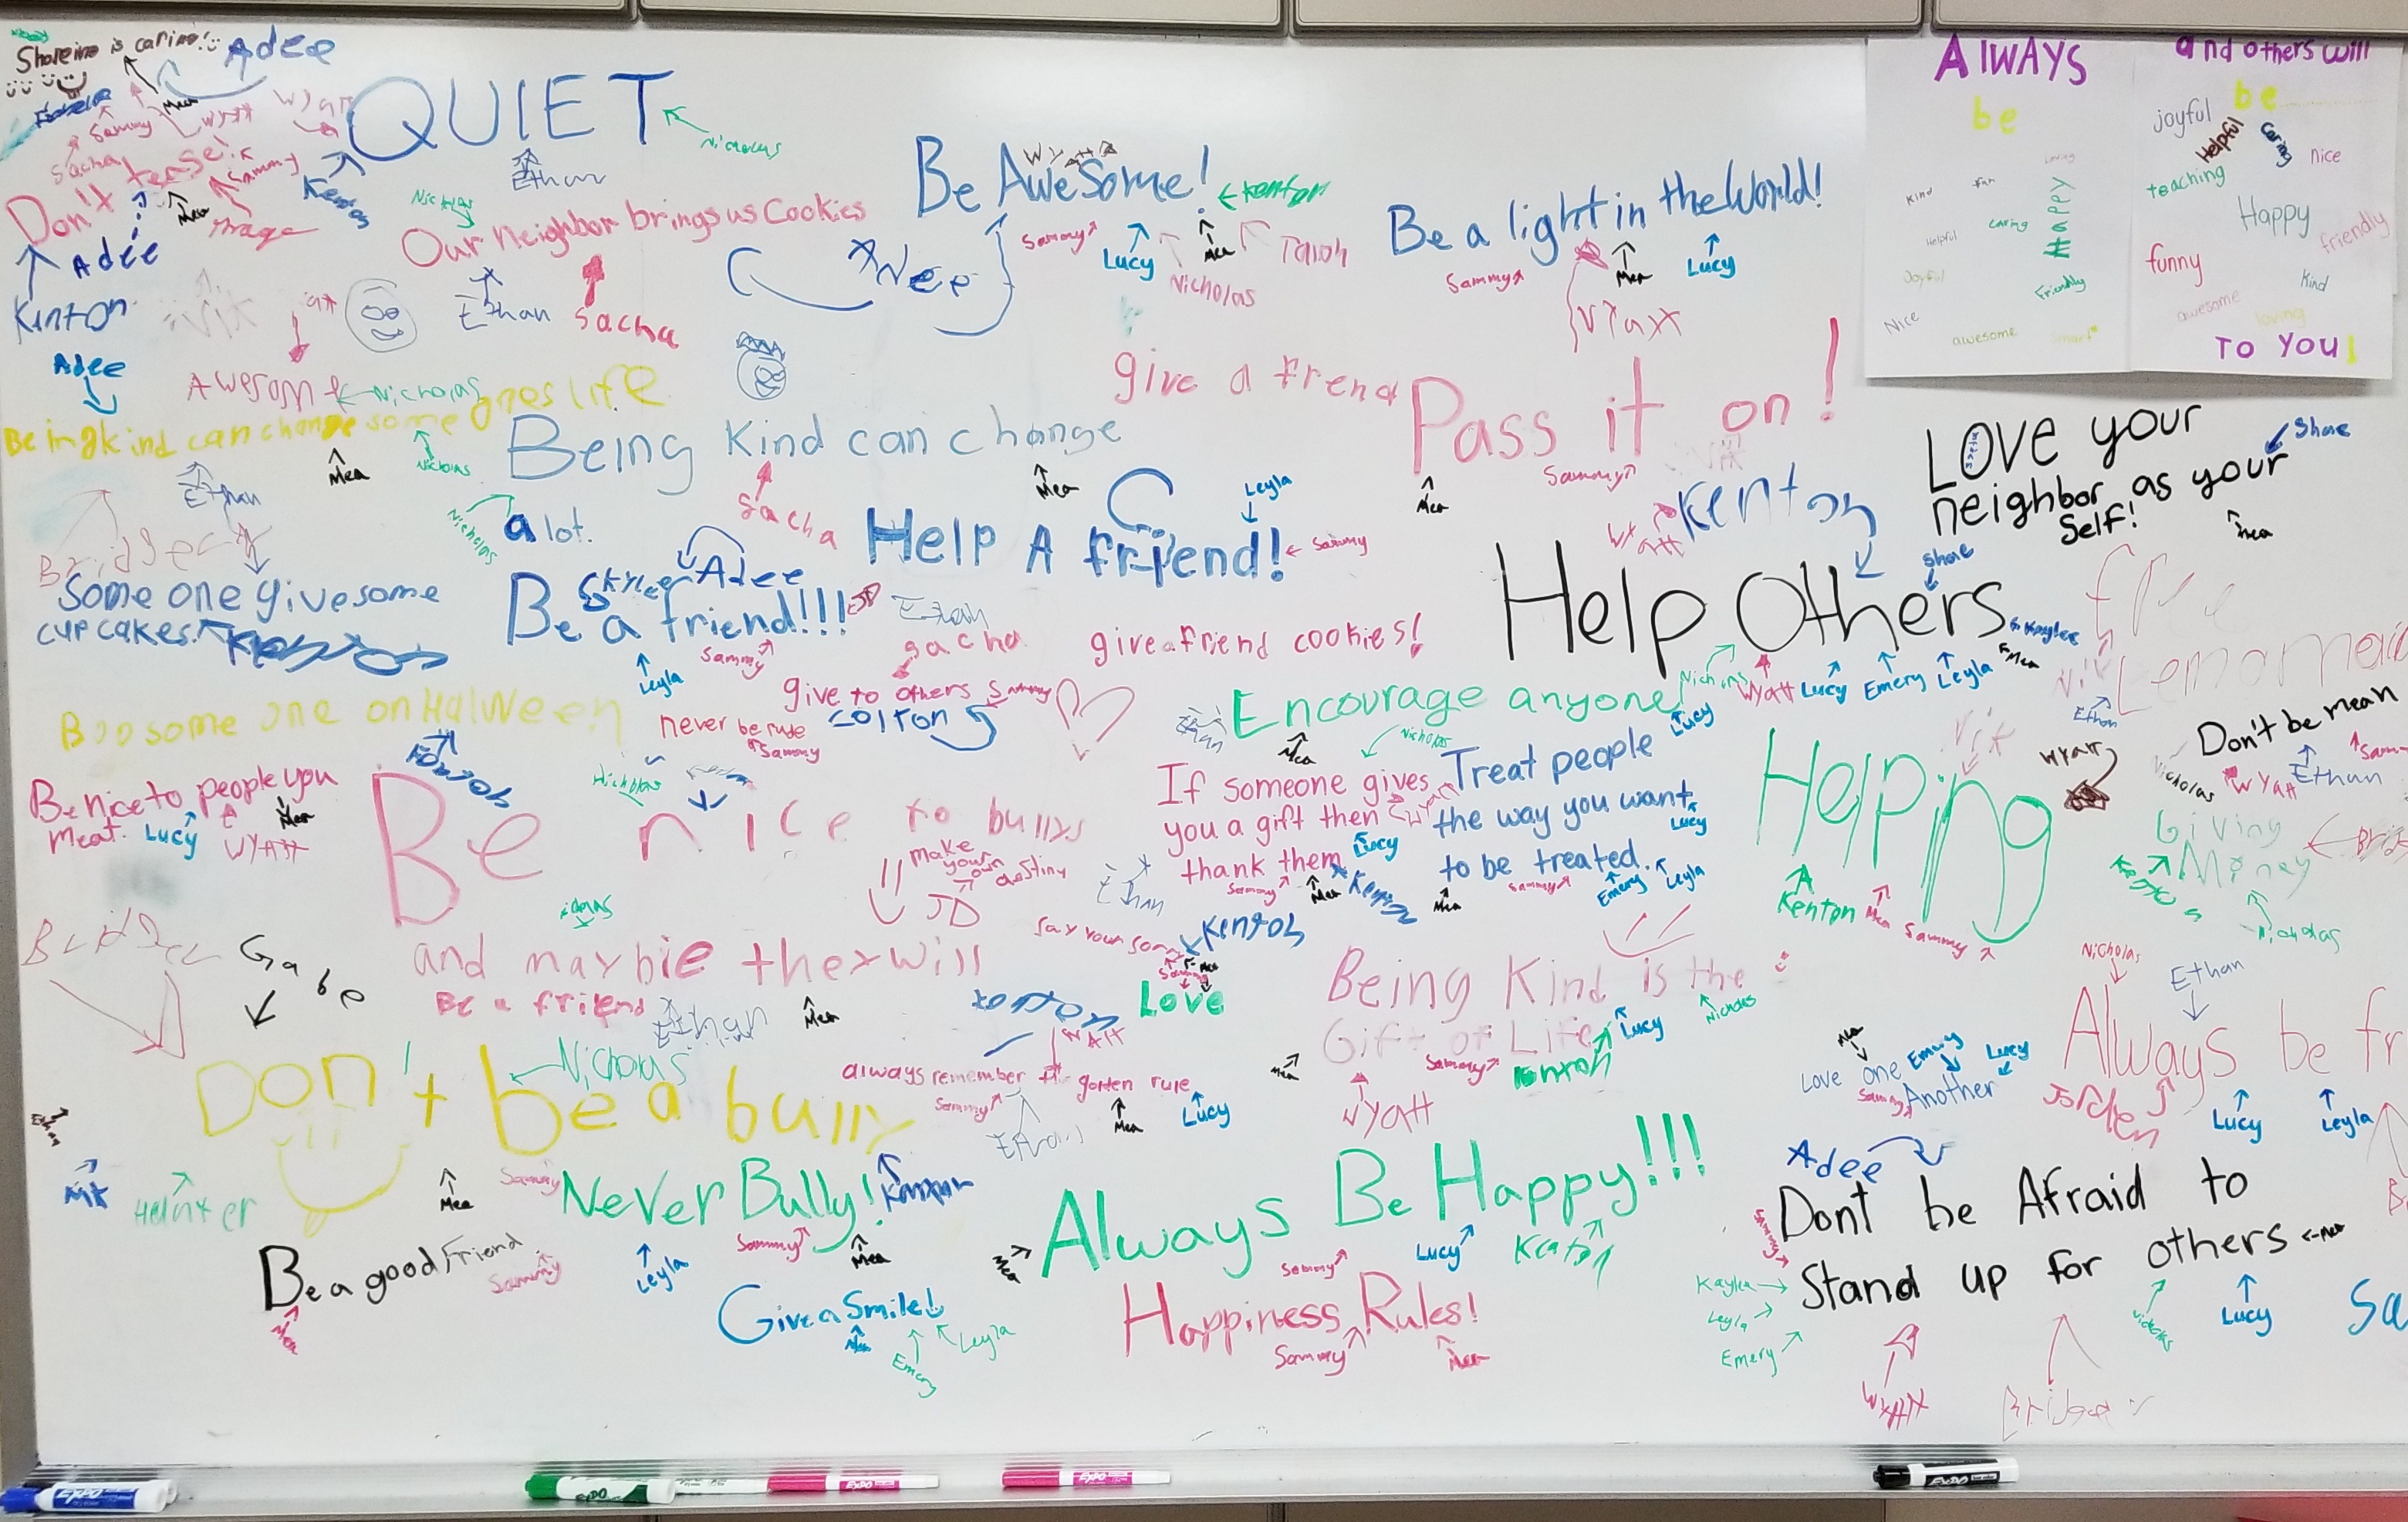 Shareing is caring!
Adee
Mea
Sammy
Wyatt
Wyatt
QUIET
Nicholas
Kenton
Ethan
Sacha
Don't tease!
Sammy
Mea
Adee
Kenton
Nicholas
Our neighbor brings us Cookies
Ethan
Sacha
Be AweSome!
Wyatt
Kenton
Adee
Sammy
Lucy
Nicholas
Mea
Be a light in the World!
Sammy
Mea
Lucy
AlWAYS
be
Loving
Kind
fun
caring
HAPPY
Helpful
Joyful
Friendly
Nice
awesome
Smart
and others will
be
joyful
Helpful
Caring
nice
teaching
Happy
friendly
funny
Kind
awesome
loving
TO YOU!
Adee
Awesome
Nicholas
Being kind can change some ones life
Ethan
Mea
Nicholas
Being Kind can change
a lot.
Nicholas
Sacha
Mea
give a frend
Pass it on!
Mea
Sammy
Wyatt
Kenton
LOVE your
neighbor as your
Self!
Shae
Mea
Some one give some
cup cakes.
Help A friend!
Leyla
Sammy
Skylee
Adee
Be a friend!!!
JD
Ethan
Leyla
Sammy
sacha
give to others
Sammy
colton
never be rude
Sammy
give a friend cookies!
Help Others
Shae
Kaylee
Nicholas
Wyatt
Lucy
Emery
Leyla
Mea
free
Lemonaid
Ethan
Boo some one on Halween
Be nice to people you
meat.
Lucy
Wyatt
Mea
Be nice to bullys
and maybie they will
Be a friend
Nicholas
Ethan
Mea
make
your
own
destiny
JD
Ethan
Encourage anyone
Lucy
Mea
Nicholas
If someone gives
you a gift then
thank them
Sammy
Mea
Lucy
Kenton
Treat people
the way you want
to be treated.
Lucy
Mea
Sammy
Emery
Leyla
Helping
Kenton
Mea
Sammy
Wyatt
Don't be mean
Nicholas
Wyatt
Ethan
Giving
Money
Nicholas
Gabe
say your sorry
Kenton
Love
Being Kind is the
Gift of Life
Lucy
Nicholas
Sammy
Wyatt
Mea
Don't be a bully
Nicholas
Hunter
Mea
Sammy
always remember the golden rule
Sammy
Ethan
Mea
Lucy
Love one
Another
Mea
Emery
Lucy
Sammy
Nicholas
Ethan
Always be fr
Jorden
Lucy
Leyla
Never Bully!
Leyla
Sammy
Mea
Be a good friend
Sammy
Give a Smile!
Emery
Leyla
Always Be Happy!!!
Mea
Sammy
Lucy
Kenton
Happiness Rules!
Sammy
Mea
Adee
Dont be Afraid to
Stand up for others
Mea
Sammy
Kaylee
Leyla
Emery
Wyatt
Nicholas
Lucy
Sa
EXPO
EXPO
EXPO
EXPO
EXPO